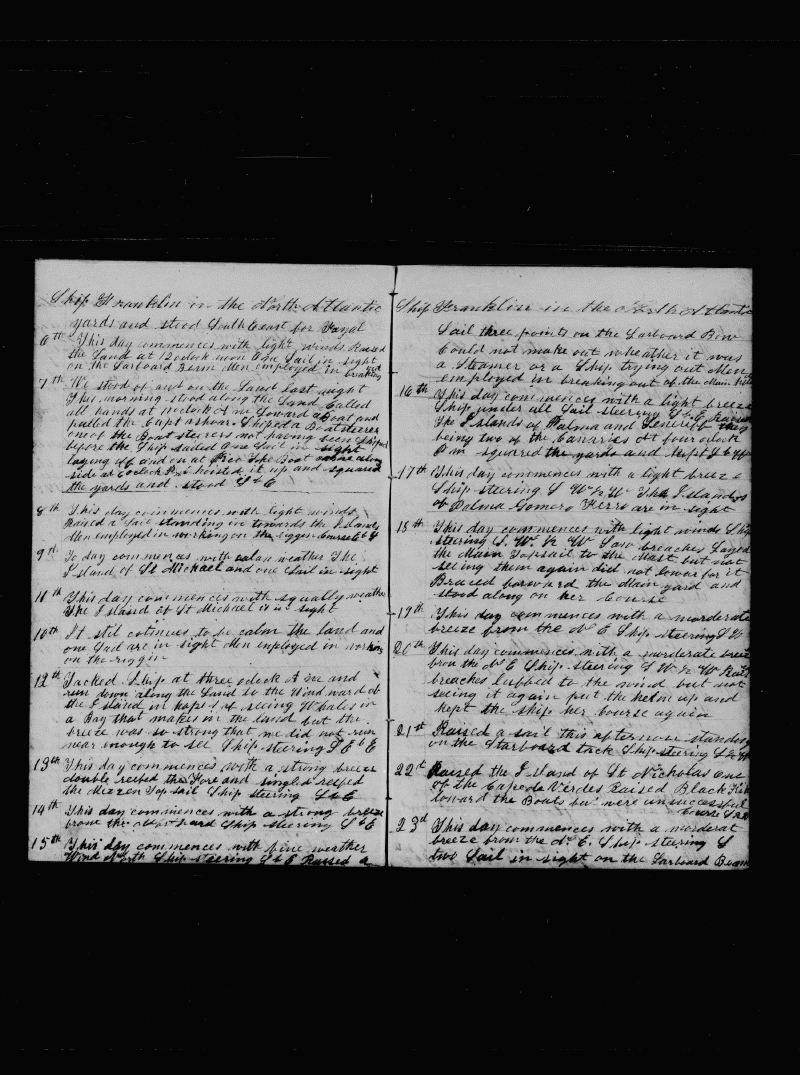 Ship Franklin in the North Atlantic
yards and stood South East for Fayal
6th This day commences with light winds Raised
the Land at 12 oclock noon One Sail in sight
on the Larboard Beam Men employed in breaking out
7th We stood of and on the Land last night
This morning stood along the Land Called
all hands at oclock A m Lowerd a Boat and
pulled the Capt ashore. Shiped a Boatsteerer
one of the Boat steerers not having been Shiped
before the Ship sailed One Sail in sight
laying of and on at Pico The Boat came along
side at 6 oclock P.m hoisted it up and squared
the yards and stood S & E
8th This day commences with light winds
Raised a Sail standing in towards the Islands
Men employed in working on the riggen Course E & S
9th To day commences with calm weather The
Island of St Michael and one Sail in sight
11th This day commences with squally weather
The Island of St Michael is in sight
10th It stil cotinues to be calm the land and
one Sail are in sight Men employed in working
on the riggin
12th Tacked Ship at three oclock A m and
run down along the Land to the Wind ward of
the Island in hopes of seeing Whales in
a Bay that makes in the land but the
breeze was so strong that we did not run
near enough to see Ship steering S E b E
13th This day commences with a strong breeze
double reefed the Fore and single reefed
the Mizzen Top sail Ship steering S & E
14th This day commences with a strong breeze
from the Northard Ship steering S & E
15th This day commences with fine weather
Wind North Ship steering S & E Raised a
Ship Franklin in the North Atlantic
Sail three points on the Larboard Bow
Could not make out wheather it was
a Steamer or a Ship trying out Men
employed in breaking out of the Main hold
16th This day commences with a light breeze
Ship under all Sail steering S & E Raised
The Islands of Palma and Teneriff they
being two of the Canaries At four oclock
P m squared the yards and kept S &
17th This day commences with a light breeze
Ship steering S W & W The Islands
of Palma Gomero Ferro are in sight
18th This day commences with light winds Ship
steering S. W. & W Saw breaches Layed
the Main Topsail to the Mast but not
seeing them again did not lower for it
Braced forward the Main yard and
stood along on her Course
19th This day commences with a morderate
breeze from the N. E Ship steering S W
20th This day commences with a morderate breeze
from the N. E Ship steering S W & W Raised
breaches lubbed to the wind but not
seeing it again put the helm up and
kept the ship her course again
21st Raised a sail this afternoon standing
on the Starboard tack Ship steering S &
22d Raised the Island of St Nicholas one
of the Cape de Verdes Raised Black Fish
lowerd the Boats but were unsuccessful
Course
23d This day commences with a morderat
breeze from the N. E. Ship steering S
two Sail in sight on the Larboard Beam